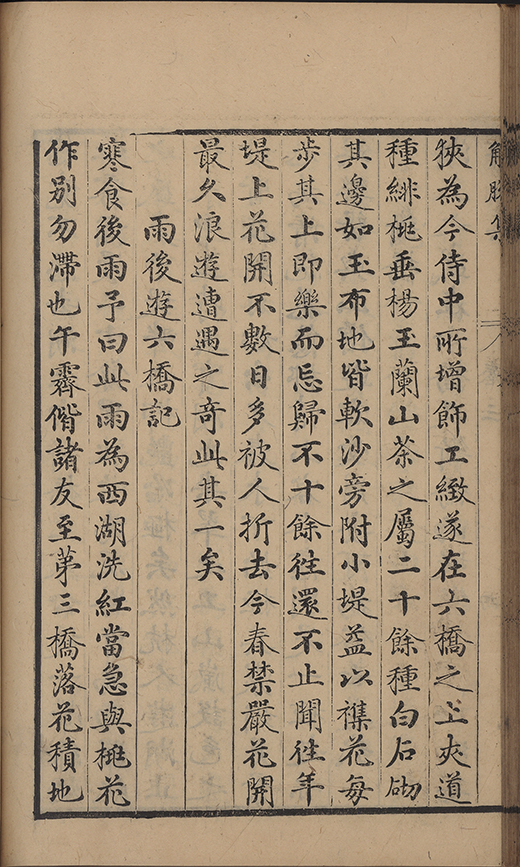 解脫集
狹為今侍中所增飾工緻遂在六橋之上夾道
種緋桃垂楊玉蘭山茶之屬二十餘種白石砌
其邊如玉布地皆軟沙旁附小堤益以襍花每
步其上即樂而忘歸不十餘往還不止聞往年
堤上花開不數日多被人折去今春禁嚴花開
最久浪遊遭遇之奇此其一矣
雨後遊六橋記
寒食後雨予曰此雨為西湖洗紅當急與桃花
作別勿滯也午霽偕諸友至第三橋落花積地